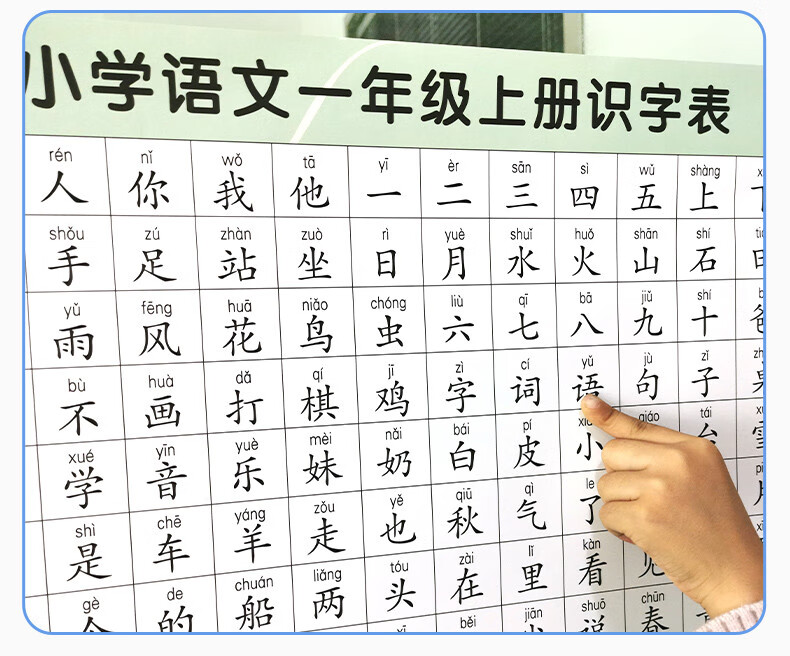 小学语文一年级上册识字表
rén nǐ wǒ tā yī èr sān sì wǔ shàng
人 你 我 他 一 二 三 四 五 上
shǒu zú zhàn zuò rì yuè shuǐ huǒ shān shí
手 足 站 坐 日 月 水 火 山 石
yǔ fēng huā niǎo chóng liù qī bā jiǔ shí
雨 风 花 鸟 虫 六 七 八 九 十
bù huà dǎ qí jī zì cí yǔ jù zǐ
不 画 打 棋 鸡 字 词 语 句 子
xué yīn yuè mèi nǎi bái pí tái
学 音 乐 妹 奶 白 皮 小
shì chē yáng zǒu yě qiū qì le
是 车 羊 走 也 秋 气 了
gè de chuán liǎng tóu zài lǐ kàn
个 的 船 两 头 在 里 看 见
běi jiān shuō chūn
说 春